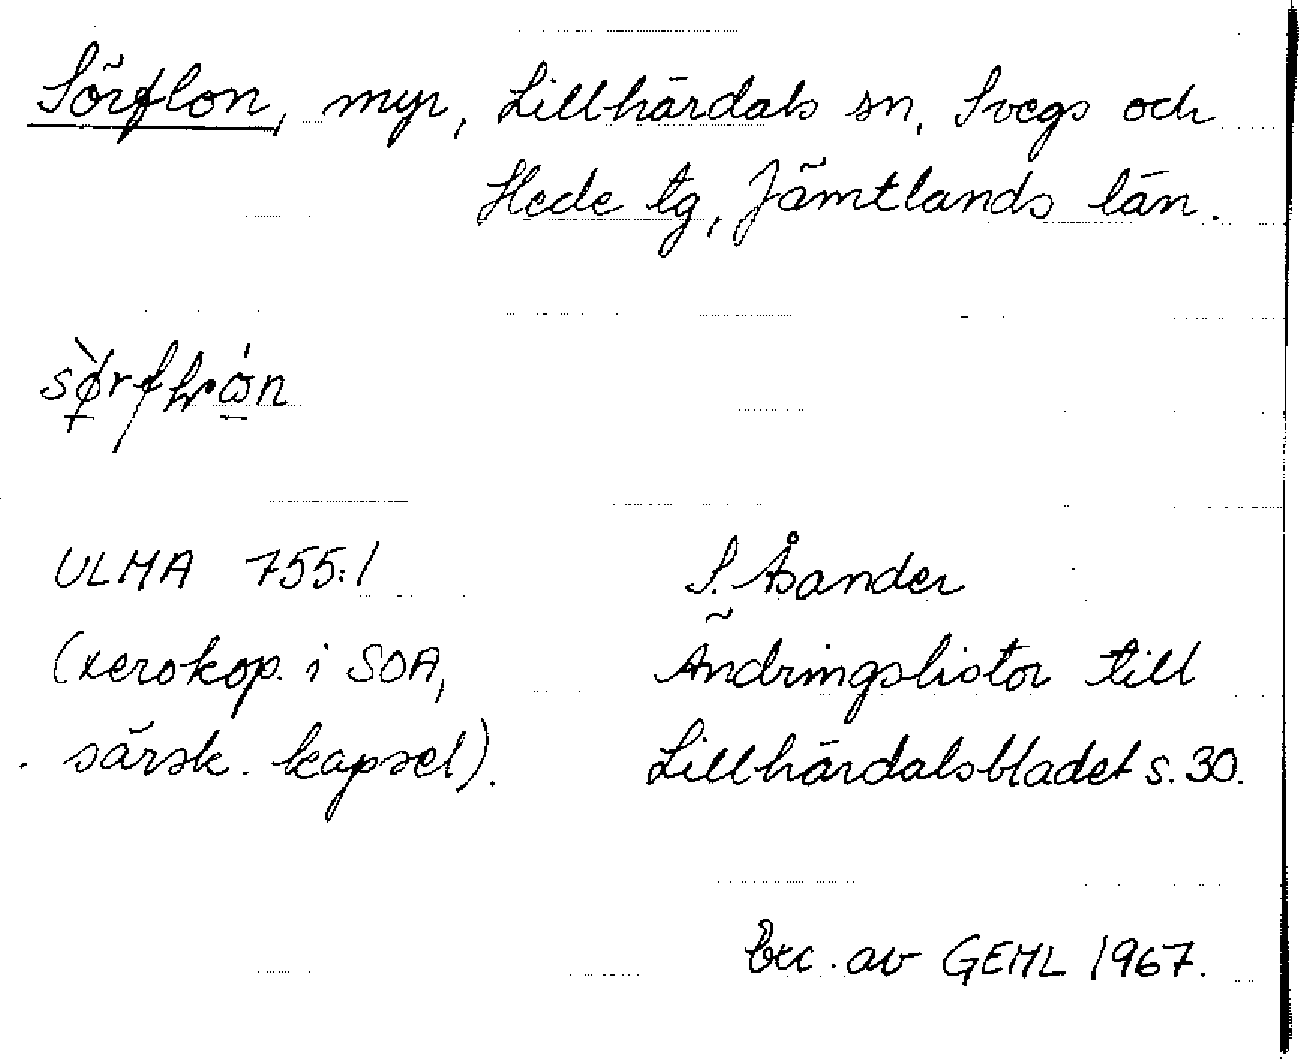 Sörflon, myr, Lillhärdals sn, Svegs och
Hede tg, Jämtlands län.
ULMA 755:1
(xerokop. i SOA,
särsk. kapsel).
S. Åsander
Ändringslistor till
Lillhärdalsbladet s. 30.
Exc. av GEML 1967.